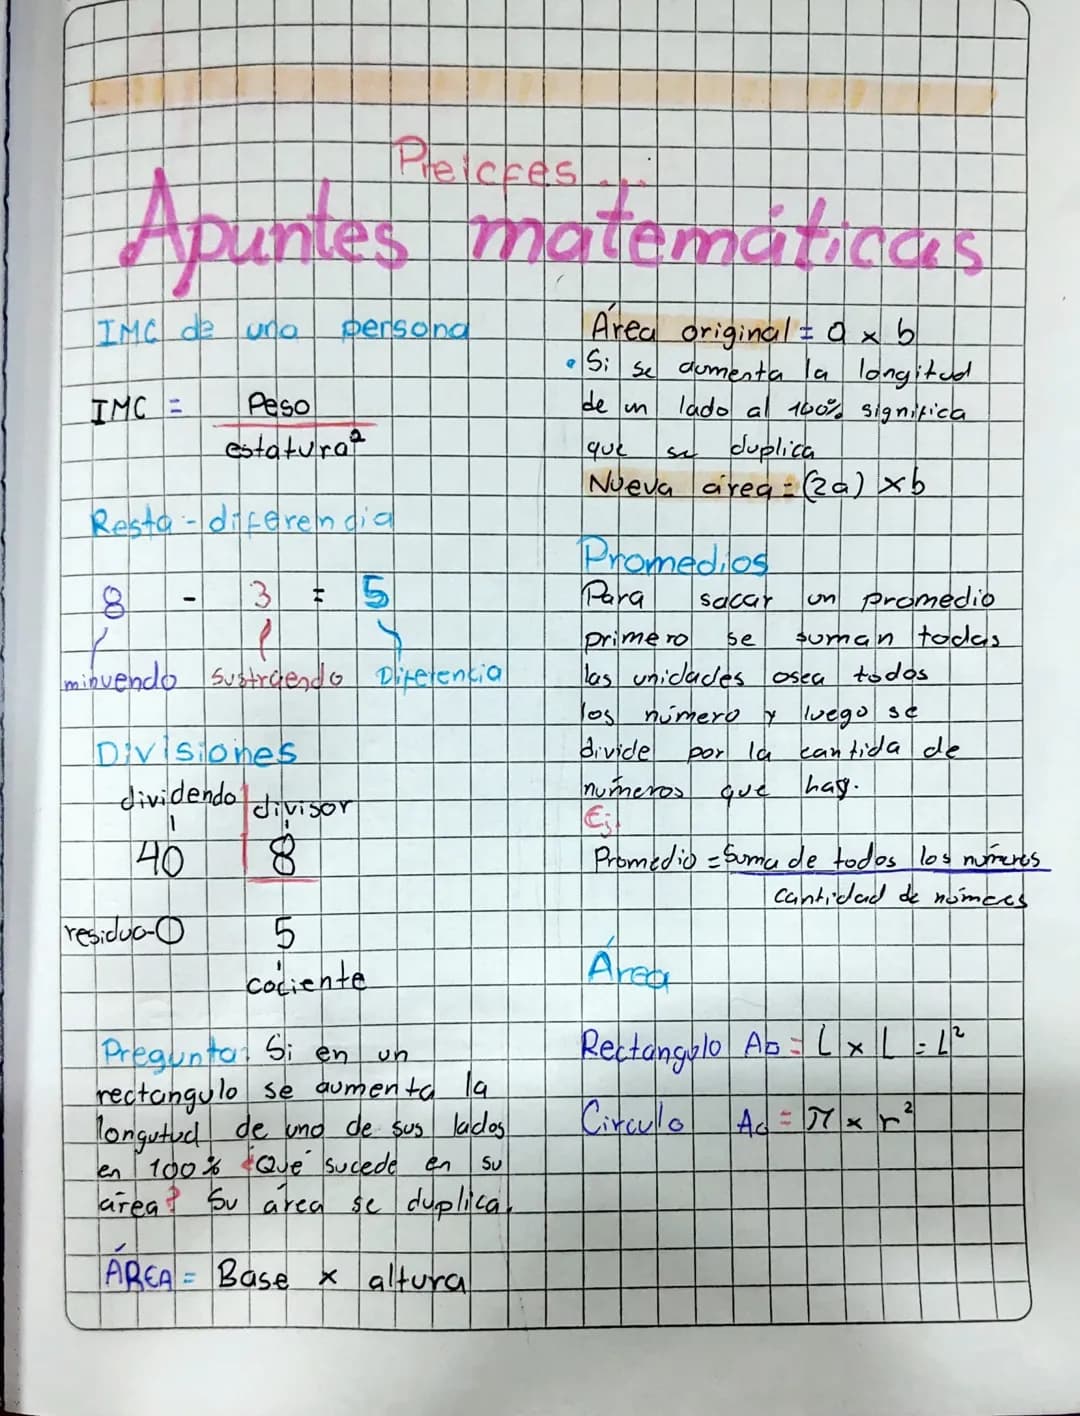 Preicfes...
Apuntes matemáticas
IMC de una persona
IMC = Peso
estatura²
Resta - diferencia
8 - 3 = 5
minuendo sustraendo Diferencia
Divisiones
dividendo divisor
40 8
residuo-0 5
cociente
Pregunta: Si en un
rectangulo se aumenta la
longutud de uno de sus lados
en 100% ¿Qué sucede en su
área? Su área se duplica.
ÁREA = Base x altura
Área original = a x b
• Si se aumenta la longitud
de un lado al 100% significa
que se duplica
Nueva área = (2a) x b
Promedios
Para sacar un promedio
primero se suman todas
las unidades osea todos
los número y luego se
divide por la cantida de
números que hay.
Ej.
Promedio = Suma de todos los números
Cantidad de números
Área
Rectangulo A□ = L x L = L²
Circulo A○ = π x r²